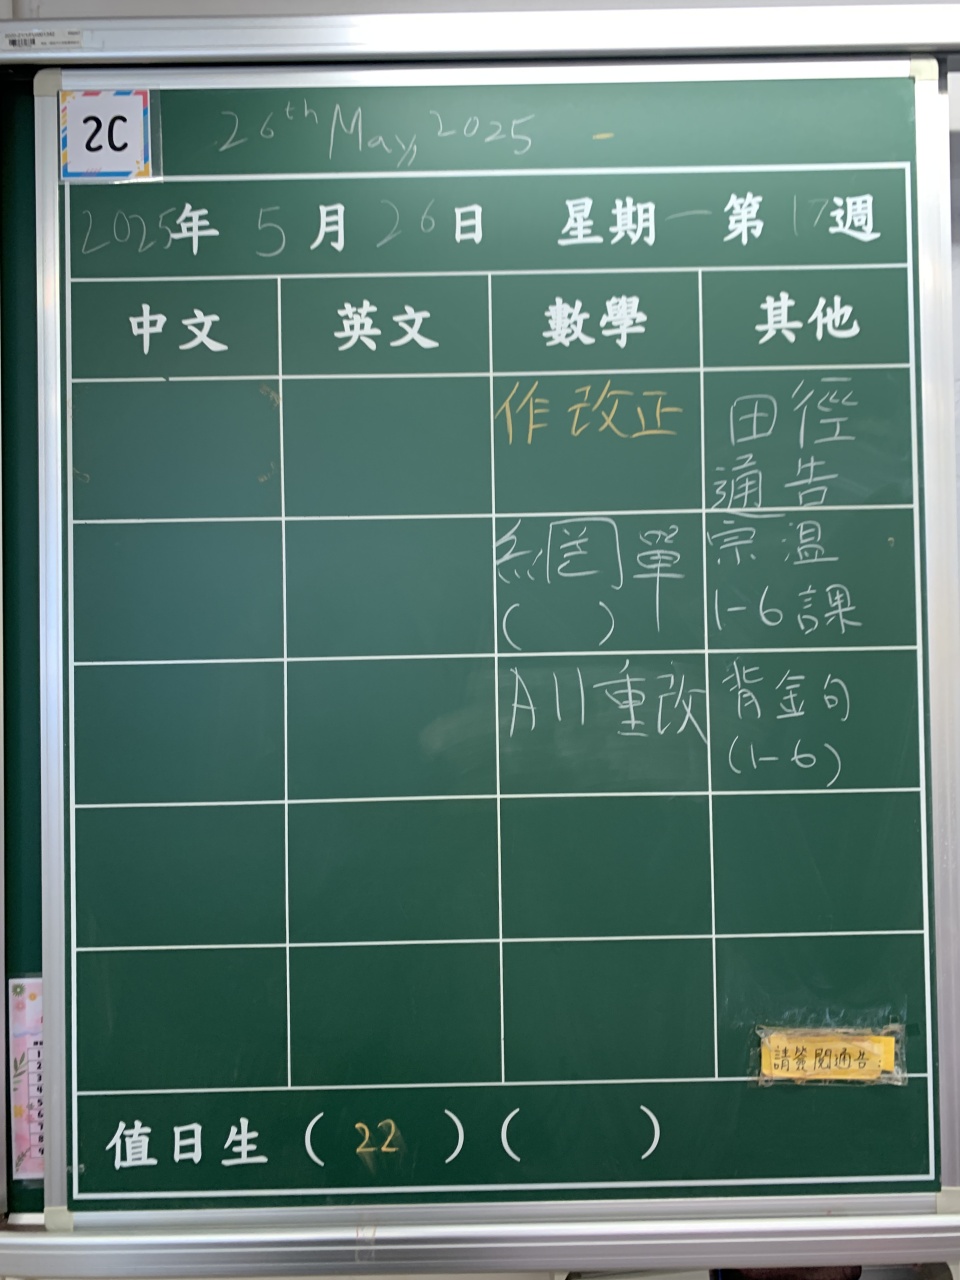 2C
26th May, 2025
2025年 5月 26日 星期一 第17週
中文 英文 數學 其他
作改正
田徑
通告
網單
( )
宗溫
1-6課
All重改
背金句
(1-6)
請簽閱通告:
值日生 ( 22 ) ( )